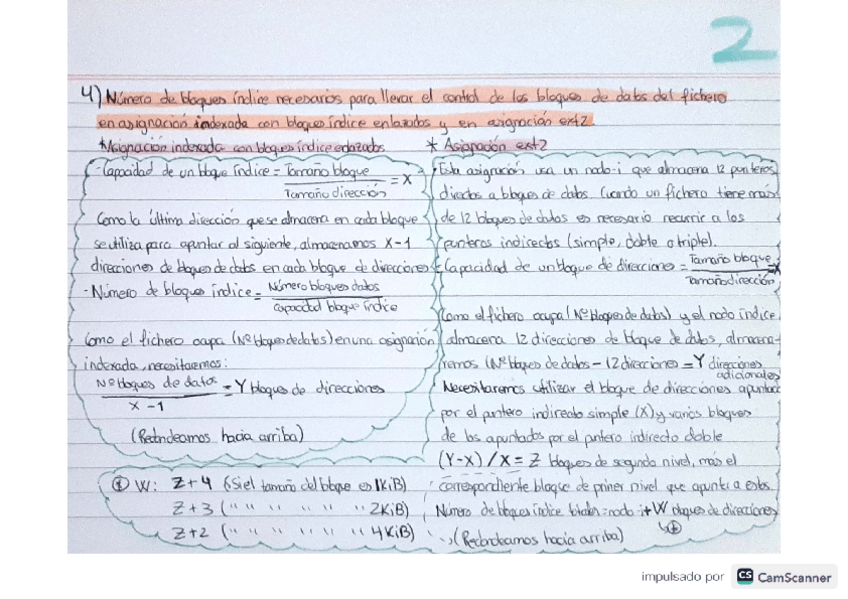 2
4) Número de bloques índice necesarios para llevar el control de los bloques de datos del fichero
en asignación indexada con bloques índice enlazados y en asignación ext2.
*Asignación indexada con bloques índice enlazados
- Capacidad de un bloque índice = Tamaño bloque / Tamaño dirección = X
Como la última dirección que se almacena en cada bloque
se utiliza para apuntar al siguiente, almacenamos X-1
direcciones de bloques de datos en cada bloque de direcciones
- Número de bloques índice = Número bloques datos / Capacidad bloque índice
Como el fichero ocupa (Nº bloques de datos) en una asignación
indexada, necesitaremos:
Nº bloques de datos / X-1 = Y bloques de direcciones
(Redondeamos hacia arriba)
* Asignación ext2
Esta asignación usa un nodo-i que almacena 12 punteros
directos a bloques de datos. Cuando un fichero tiene más
de 12 bloques de datos es necesario recurrir a los
punteros indirectos (simple, doble o triple).
- Capacidad de un bloque de direcciones = Tamaño bloque / Tamaño dirección = X
Como el fichero ocupa (Nº bloques de datos) y el nodo índice
almacena 12 direcciones de bloque de datos, almacena-
remos (Nº bloques de datos - 12 direcciones = Y direcciones
adicionales
Necesitaremos utilizar el bloque de direcciones apuntado
por el puntero indirecto simple (X) y varios bloques
de los apuntados por el puntero indirecto doble
(Y-X)/X = Z bloques de segundo nivel, más el
correspondiente bloque de primer nivel que apunta a estos.
Número de bloques índice totales = nodo i + W bloques de direcciones
(Redondeamos hacia arriba)
W: Z+4 (Si el tamaño del bloque es 1KiB)
Z+3 (" " " " " " 2KiB)
Z+2 (" " " " " " 4KiB)
impulsado por CS CamScanner